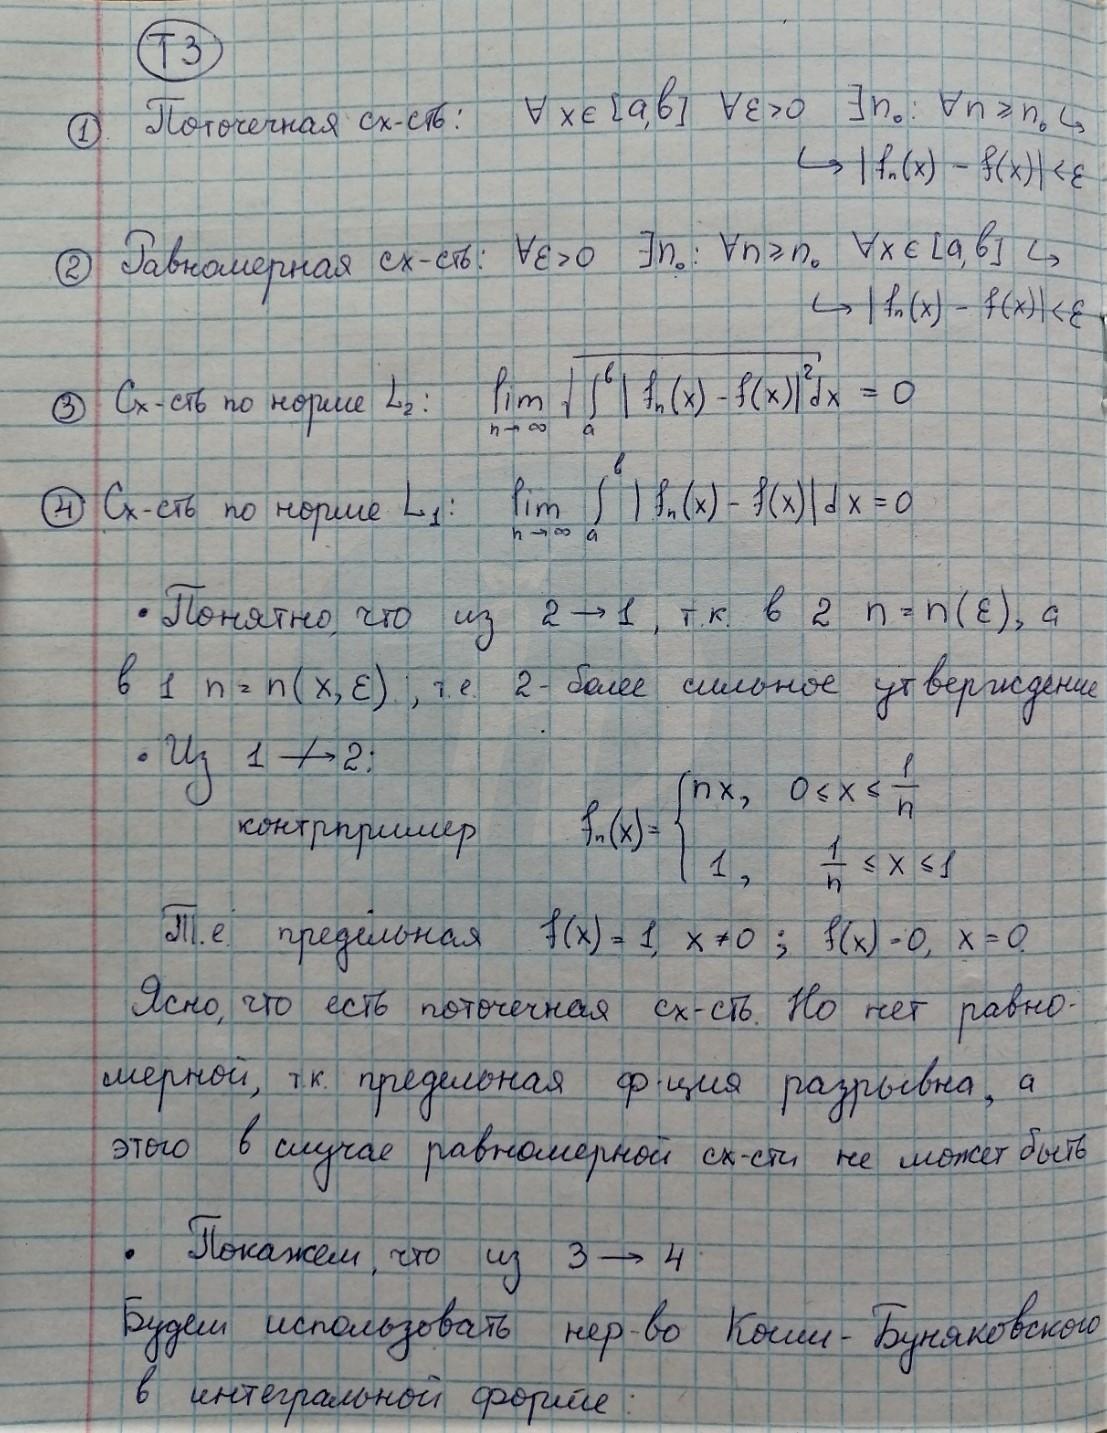 Т3
① Поточечная сх-сть: ∀ x ∈ [a,b] ∀ε>0 ∃n₀: ∀n ≥ n₀ ↪
↪ |fₙ(x) - f(x)| < ε
② Равномерная сх-сть: ∀ε>0 ∃n₀: ∀n ≥ n₀ ∀x ∈ [a,b] ↪
↪ |fₙ(x) - f(x)| < ε
③ Сх-сть по норме L₂: lim n→∞ √∫ₐᵇ |fₙ(x) - f(x)|² dx = 0
④ Сх-сть по норме L₁: lim n→∞ ∫ₐᵇ |fₙ(x) - f(x)| dx = 0
• Понятно, что из 2 → 1, т.к. в 2 n = n(ε), а
в 1 n = n(x, ε), т.е. 2 - более сильное утверждение
• Из 1 ↛ 2:
контрпример fₙ(x) = { nx, 0 ≤ x ≤ 1/n
1, 1/n ≤ x ≤ 1
Т.е. предельная f(x) = 1, x ≠ 0 ; f(x) = 0, x = 0.
Ясно, что есть поточечная сх-сть. Но нет равно-
мерной, т.к. предельная ф-ция разрывна, а
этого в случае равномерной сх-сти не может быть
• Покажем, что из 3 → 4
Будем использовать нер-во Коши-Буняковского
в интегральной форме: